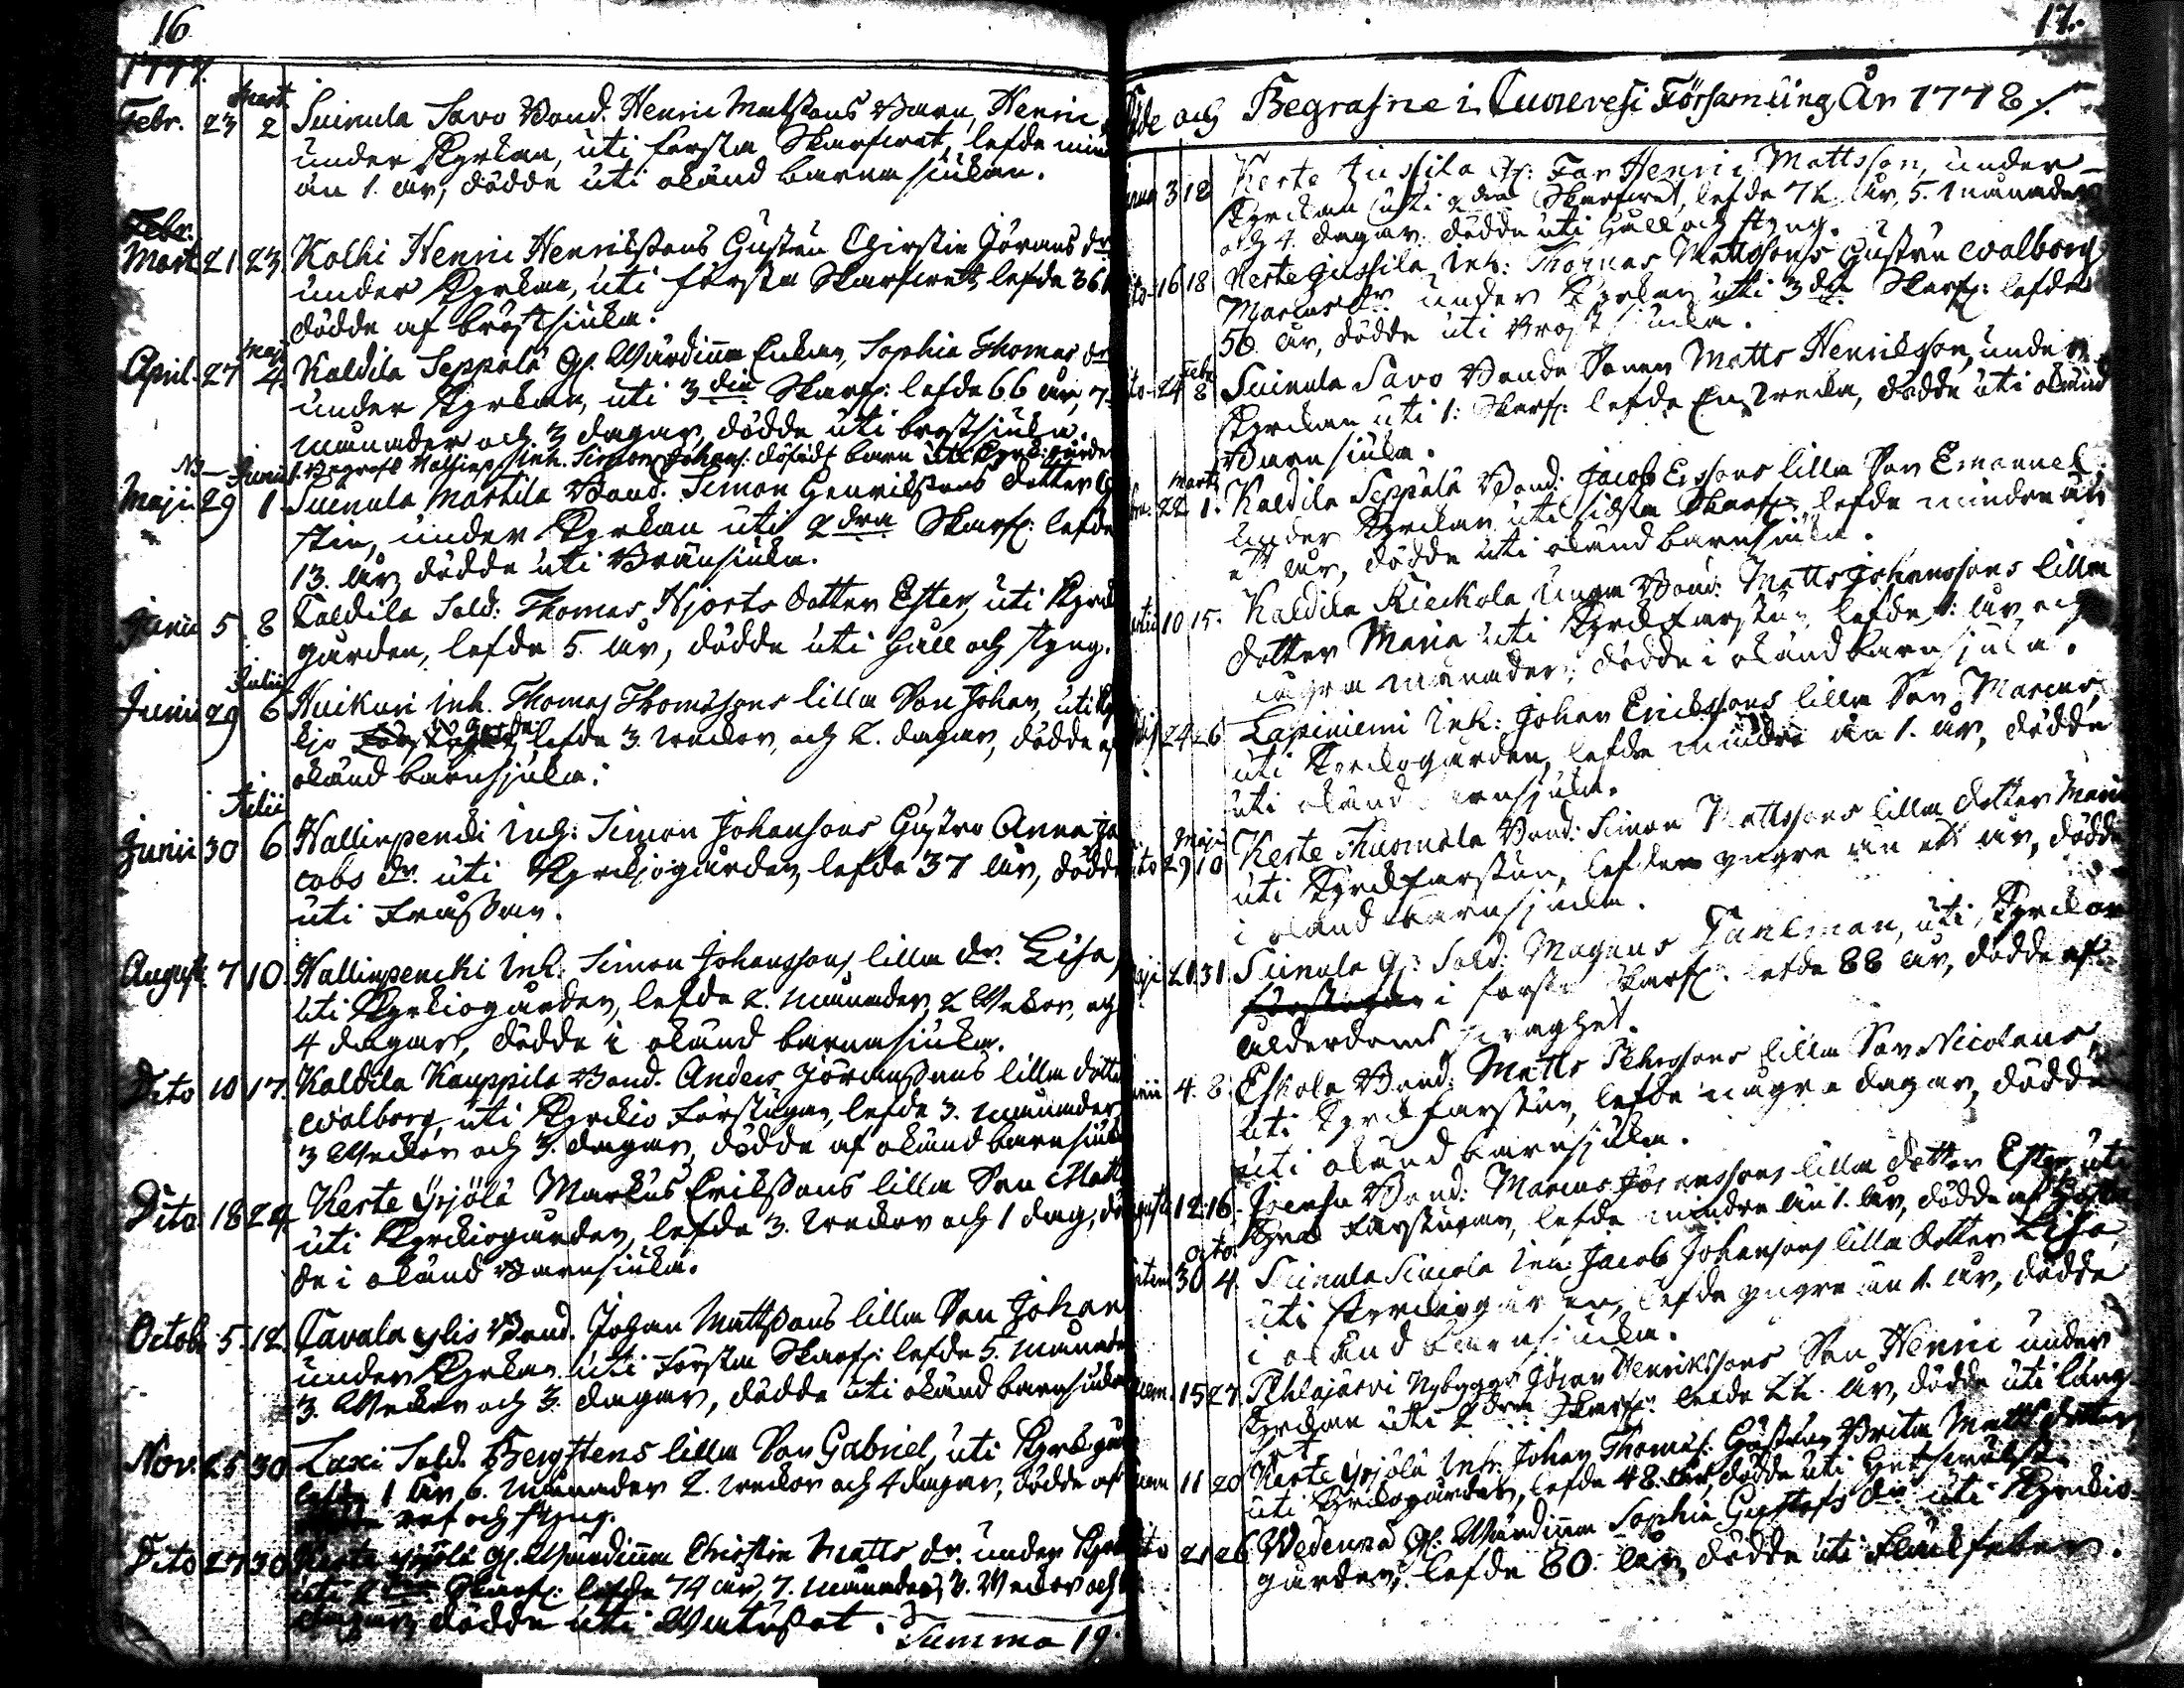 16
1777.
Febr. 23 Mart. 2 Suinula Savo Bond. Henric Matssons Barn, Henric
under Kyrkan, uti första Skarfwet, lefde min
än 1. år, dödde uti okänd barna siukan.
Febr.
Mart. 21 23 Kolhi Henric Henrikssons Gustru Chirstin Jörans dr
under Kyrkan, uti första Skarfwet, lefde 36
dödde af bröstsiuka.
April. 27 Maji 4. Kaldila Seppälä Gl. Wärdinna Enkan, Sophia Thomas dr
under Kyrkan, uti 3die Skarf: lefde 66 år, 7
månader och 3 dagar, dödde uti bröstsiuka.
NB Junii 1. Begrofs Hallinp. Inh. Simon Johans: dödfödt barn
Maji 29 1 Suinula Martila Bond. Simon Henrikssons dotter
stin, under Kyrkan uti 2dra Skarf: lefde
13. år, dödde uti Bränsiuka.
Junii 5 8 Kaldila Sold: Thomas Hjorts dotter Ester, uti Kyrk
gården, lefde 5. år, dödde uti håll och styng.
Junii 29 Julii 6 Huikuri Inh. Thomas Thomassons lilla Son Johan, uti Ky
kjo gården lefde 3. weckor, och 2. dagar, dödde af
okänd barnsjuka.
Junii 30 Julii 6 Hallinpencki Inh: Simon Johansons Gustru Anna Ja
cobs dr. uti Kyrkjogården, lefde 37 år, dödde
uti Frussan.
August: 7 10 Hallinpencki Inh. Simon Johanssons lilla dr. Lisa,
uti Kyrkiogården, lefde 2. månader, 2 Wekor, och
4 dagar, dödde i okänd barnasiuka.
Dito 10 17. Kaldila Kauppila Bond. Anders Jöranssons lilla dotter
Walborg, uti Kyrkio Förstugan, lefde 3. månader
3 Weckor och 3. dagar, dödde af okänd barnsiuk
Dito 18 24 Kerte Yrjölä Markus Erikssons lilla Son Matts
uti Kyrkiogården, lefde 3. weckor och 1 dag, dö
de i okänd Barnsiuka.
Octob. 5. 12. Tavala ylis Bond. Johan Mattssons lilla Son Johan
under Kyrkan uti Första Skarf: lefde 5. månader
3. Weckor och 3. dagar, dödde uti okänd barnsiuka
Nov. 25 30 Laxi Sold. Bergstens lilla Son Gabriel, uti Kyrkgår
lefde 1 år 6. månader 2. weckor och 4 dagar, dödde af
ref och styng.
Dito 27 30 Kerte Yrjölä Gl. Wärdinna Christin Matts dr. under Kyrk
uti 2dra Skarf: lefde 74 år, 7. månader, 2. Weckor och
dagar, dödde uti Wattusot.
Summa 19.
17.
Döde och Begrafne i Tuorevesi Församling År 1778.
3 12 Kerte Jussila Gl: Far Henric Mattsson, under
Kyrkan uti 2dra Skarfwet, lefde 72. år, 5. månader
och 4. dagar. dödde uti Håll och styng.
16 18 Kerte Jussila Inh: Thomas Mattssons Gustru Walborg
Marcus dr. under Kyrkan uti 3die Skarf: lefde
56. år, dödde uti Bröstsiuka.
24 Febr. 8 Suinula Savo Bonde Sonen Matts Henriksson, under
Kyrkan uti 1: Skarf: lefde En wecka, dödde uti okänd
Barnsiuka.
22 Marti 1. Kaldila Seppälä Bond: Jacob Erssons lilla Son Emanuel
under Kyrkan uti sidsta Skarf: lefde mindre än
ett år, dödde uti okänd barnsiuka.
10 15. Kaldila Kieckola unga Bond: Matts Johanssons lilla
dotter Maria uti Kyrkfarstun, lefde 1: år och
några månader, dödde i okänd barnsjuka.
24 26 Lapiniemi Inh: Johan Erikssons lilla Son Marcus,
uti Kyrkogården, lefde mindre än 1. år, dödde
uti okänd barnsjuka.
29 Maji 10 Kerte Thuomala Bond: Simon Mattssons lilla dotter Maria
uti Kyrkfarstun, lefde yngre än ett år, dödde
i okänd barnsjuka.
31 Suinula Gl: Sold: Magnus Tankman, uti Kyrkan
i första Skarf: lefde 88 år, dödde af
ålderdoms swaghet.
4. 8. Eskola Bond: Matts Pehrssons lilla Son Nicolaus,
uti Kyrkfarstun, lefde några dagar, dödde
uti okänd barnsjuka.
12. 16. Bond: Marcus Jöranssons lilla dotter Ester, uti
Kyrk Farstugan, lefde mindre än 1. år, dödde af Hosta
30 Octo. 4. Suinula Inh: Jacob Johansons lilla dotter Lisa,
uti Kyrkiogården, lefde yngre än 1. år, dödde
i okänd barnsiuka.
15 27. Pihlajasvi Nybyggar Jöran Henrikssons Son Henric under
Kyrkan uti 2dra Skarf: lefde 22. år, dödde uti lung
sot
11 20 Kerte Yrjölä Inh: Johan Thomas: Gustru Brita Matts dotter,
uti Kyrkogården, lefde 48. år, dödde uti
21 26 Wedenpä Gl. Wärdinna Sophia Gustafs dr. uti Kyrkio
gården, lefde 80. år, dödde uti Fläckfeber.